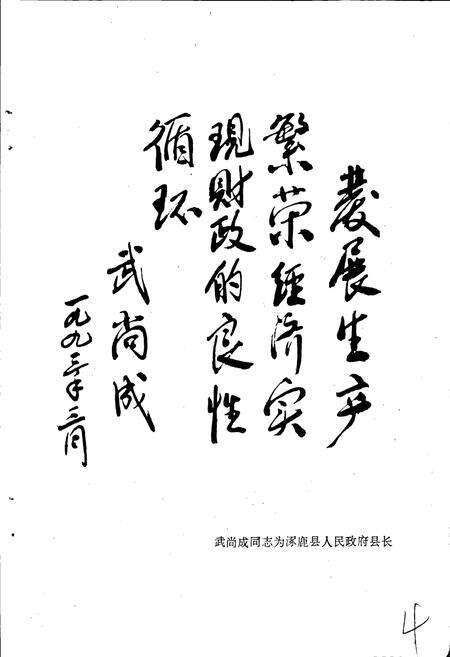 發展生产
繁荣经济实
现财政的良性
循环
武尚成
一九九三年三月
武尚成同志为涿鹿县人民政府县长
4